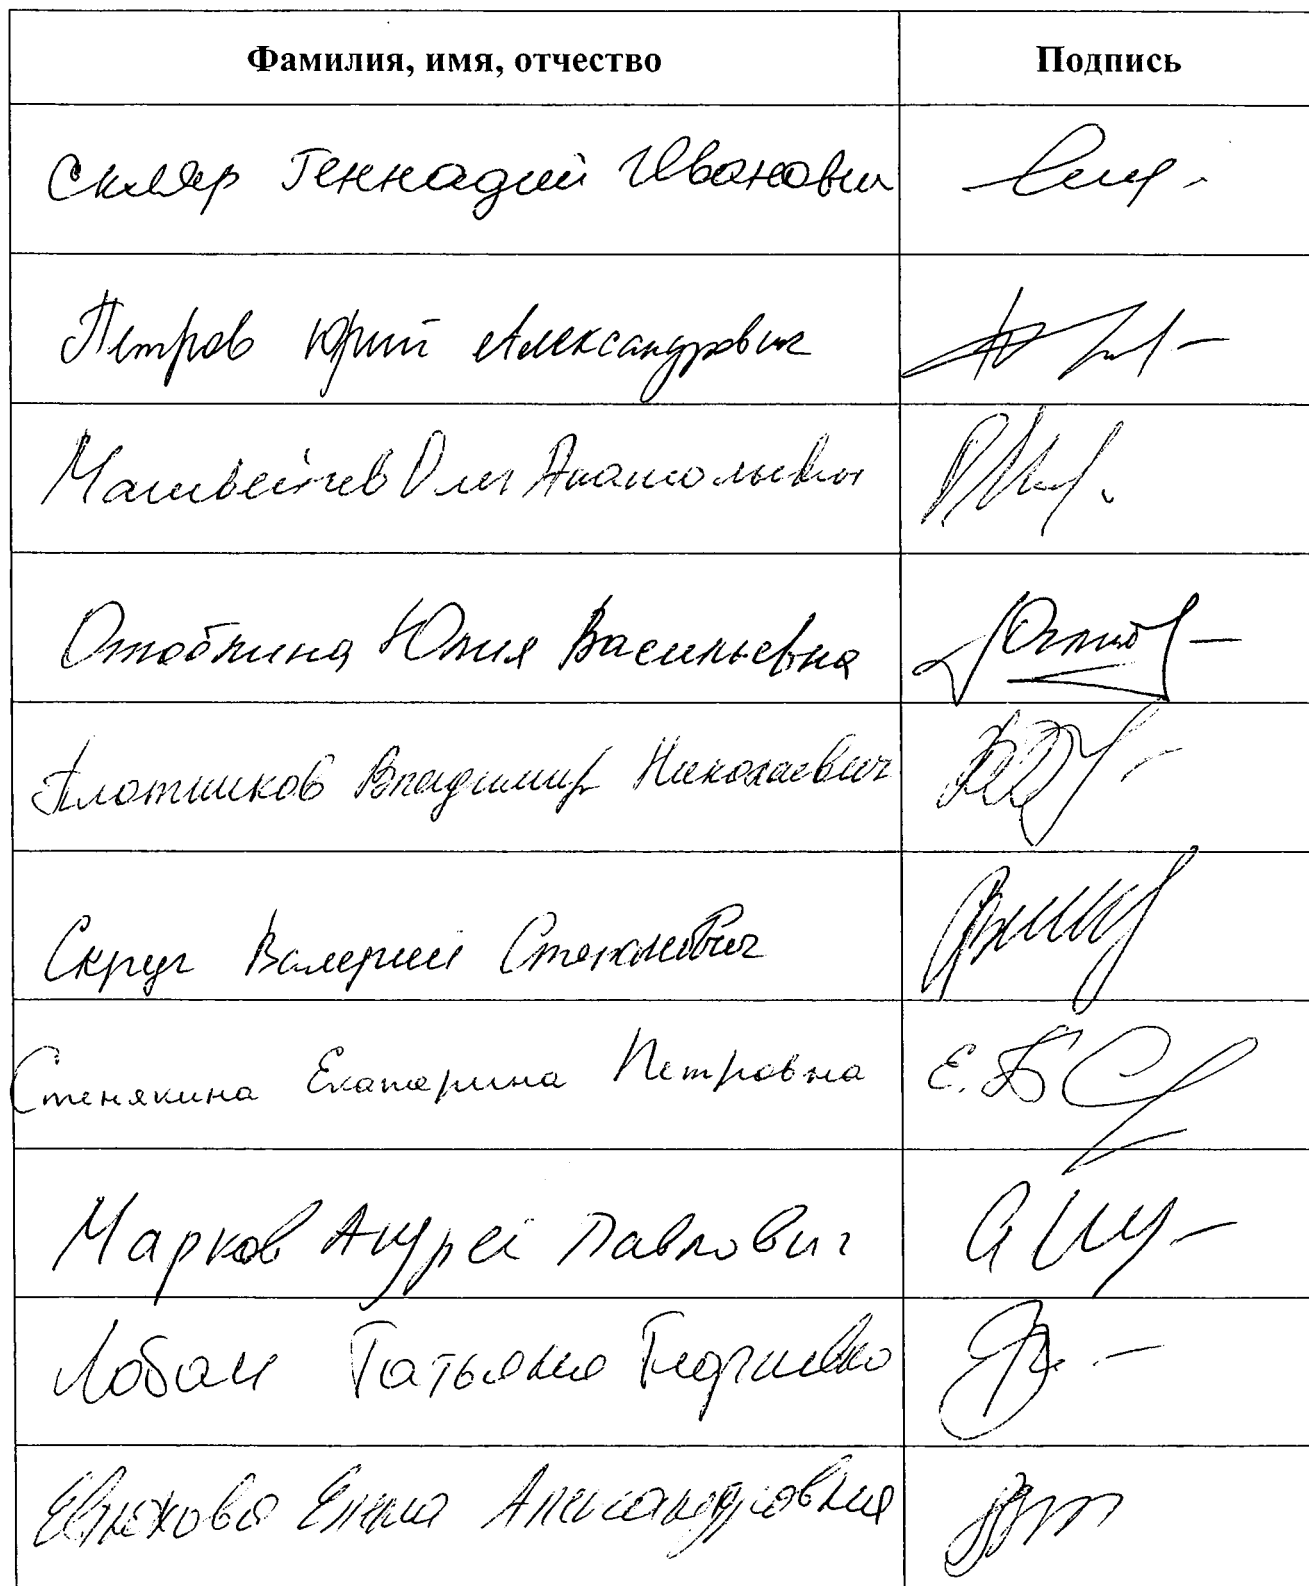 Фамилия, имя, отчество Подпись
Скляр Геннадий Иванович
Петров Юрий Александрович
Матвейчев Олег Анатольевич
Отоблина Юлия Васильевна
Плотников Владимир Николаевич
Скруг Валерий Степанович
Стенякина Екатерина Петровна
Е.П.С
Марков Андрей Павлович
Лобач Татьяна Георгиевна
Евтюхова Елена Александровна